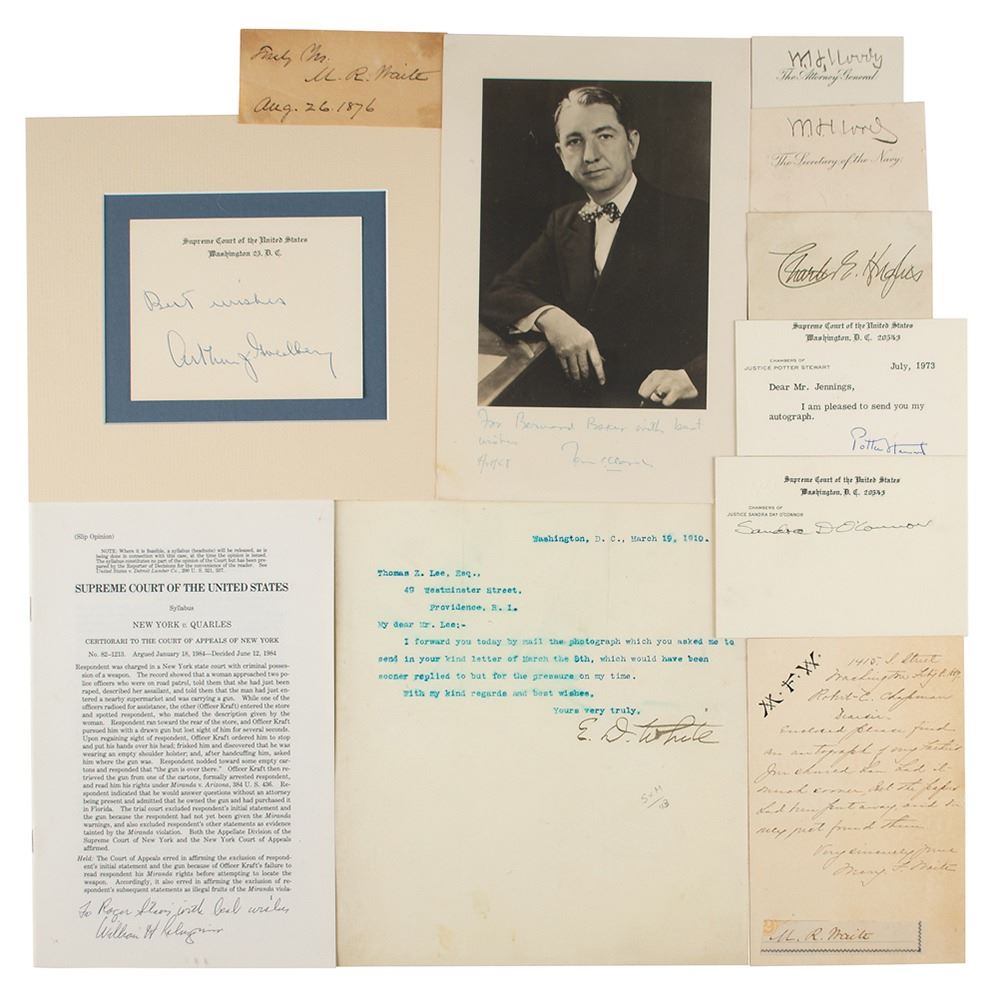 Truly Chs.
M. R. Waite
Aug. 26. 1876
Supreme Court of the United States
Washington 23, D. C.
Best wishes
Arthur J Goldberg
For Bernard Baker with best
wishes
Tom C Clark
The Attorney General
The Secretary of the Navy.
Charles E. Hughes
Supreme Court of the United States
Washington, D. C. 20543
CHAMBERS OF
JUSTICE POTTER STEWART
July, 1973
Dear Mr. Jennings,
I am pleased to send you my
autograph.
Potter Stewart
Supreme Court of the United States
Washington, D. C. 20543
CHAMBERS OF
JUSTICE SANDRA DAY O'CONNOR
Sandra D O'Connor
(Slip Opinion)
NOTE: Where it is feasible, a syllabus (headnote) will be released, as is
being done in connection with this case, at the time the opinion is issued.
The syllabus constitutes no part of the opinion of the Court but has been pre-
pared by the Reporter of Decisions for the convenience of the reader. See
United States v. Detroit Lumber Co., 200 U. S. 321, 337.
SUPREME COURT OF THE UNITED STATES
Syllabus
NEW YORK v. QUARLES
CERTIORARI TO THE COURT OF APPEALS OF NEW YORK
No. 82–1213. Argued January 18, 1984—Decided June 12, 1984
Respondent was charged in a New York state court with criminal posses-
sion of a weapon. The record showed that a woman approached two po-
lice officers who were on road patrol, told them that she had just been
raped, described her assailant, and told them that the man had just en-
tered a nearby supermarket and was carrying a gun. While one of the
officers radioed for assistance, the other (Officer Kraft) entered the store
and spotted respondent, who matched the description given by the
woman. Respondent ran toward the rear of the store, and Officer Kraft
pursued him with a drawn gun but lost sight of him for several seconds.
Upon regaining sight of respondent, Officer Kraft ordered him to stop
and put his hands over his head; frisked him and discovered that he was
wearing an empty shoulder holster; and, after handcuffing him, asked
him where the gun was. Respondent nodded toward some empty car-
tons and responded that "the gun is over there." Officer Kraft then re-
trieved the gun from one of the cartons, formally arrested respondent,
and read him his rights under Miranda v. Arizona, 384 U. S. 436. Re-
spondent indicated that he would answer questions without an attorney
being present and admitted that he owned the gun and had purchased it
in Florida. The trial court excluded respondent's initial statement and
the gun because the respondent had not yet been given the Miranda
warnings, and also excluded respondent's other statements as evidence
tainted by the Miranda violation. Both the Appellate Division of the
Supreme Court of New York and the New York Court of Appeals
affirmed.
Held: The Court of Appeals erred in affirming the exclusion of respond-
ent's initial statement and the gun because of Officer Kraft's failure to
read respondent his Miranda rights before attempting to locate the
weapon. Accordingly, it also erred in affirming the exclusion of re-
spondent's subsequent statements as illegal fruits of the Miranda viola-
To Roger with best wishes
William H Rehnquist
Washington, D. C., March 19, 1910.
Thomas Z. Lee, Esq.,
49 Westminster Street,
Providence, R. I.
My dear Mr. Lee:-
I forward you today by mail the photograph which you asked me to
send in your kind letter of March the 8th, which would have been
sooner replied to but for the pressure on my time.
With my kind regards and best wishes,
Yours very truly,
E. D. White
M. F. W.
1415 I Street
Washington
Robert C. Chapman
Dear Sir.
Enclosed please find
an autograph of my Father's
had it
much sooner, but the papers
had been put away and I
very just found them
Very sincerely yours
Mary F Waite
M. R. Waite